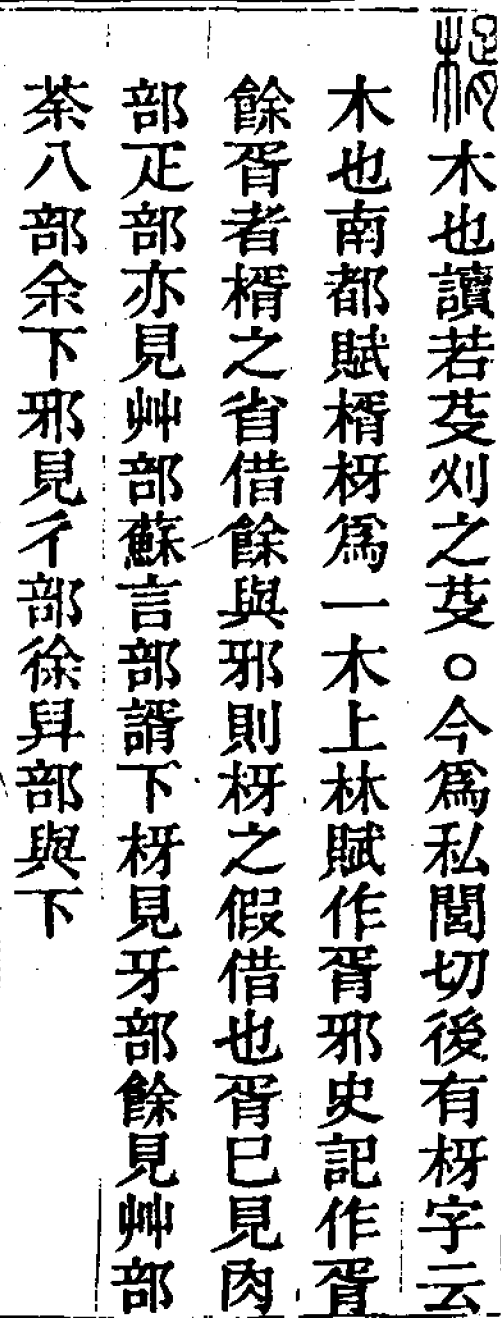 楈木也讀若芟刈之芟○今爲私閭切後有枒字云
木也南都賦楈枒爲一木上林賦作胥邪史記作胥
餘胥者楈之省借餘與邪則枒之假借也胥巳見肉
部疋部亦見艸部蘇言部諝下枒見牙部餘見艸部
荼八部余下邪見彳部徐舁部與下